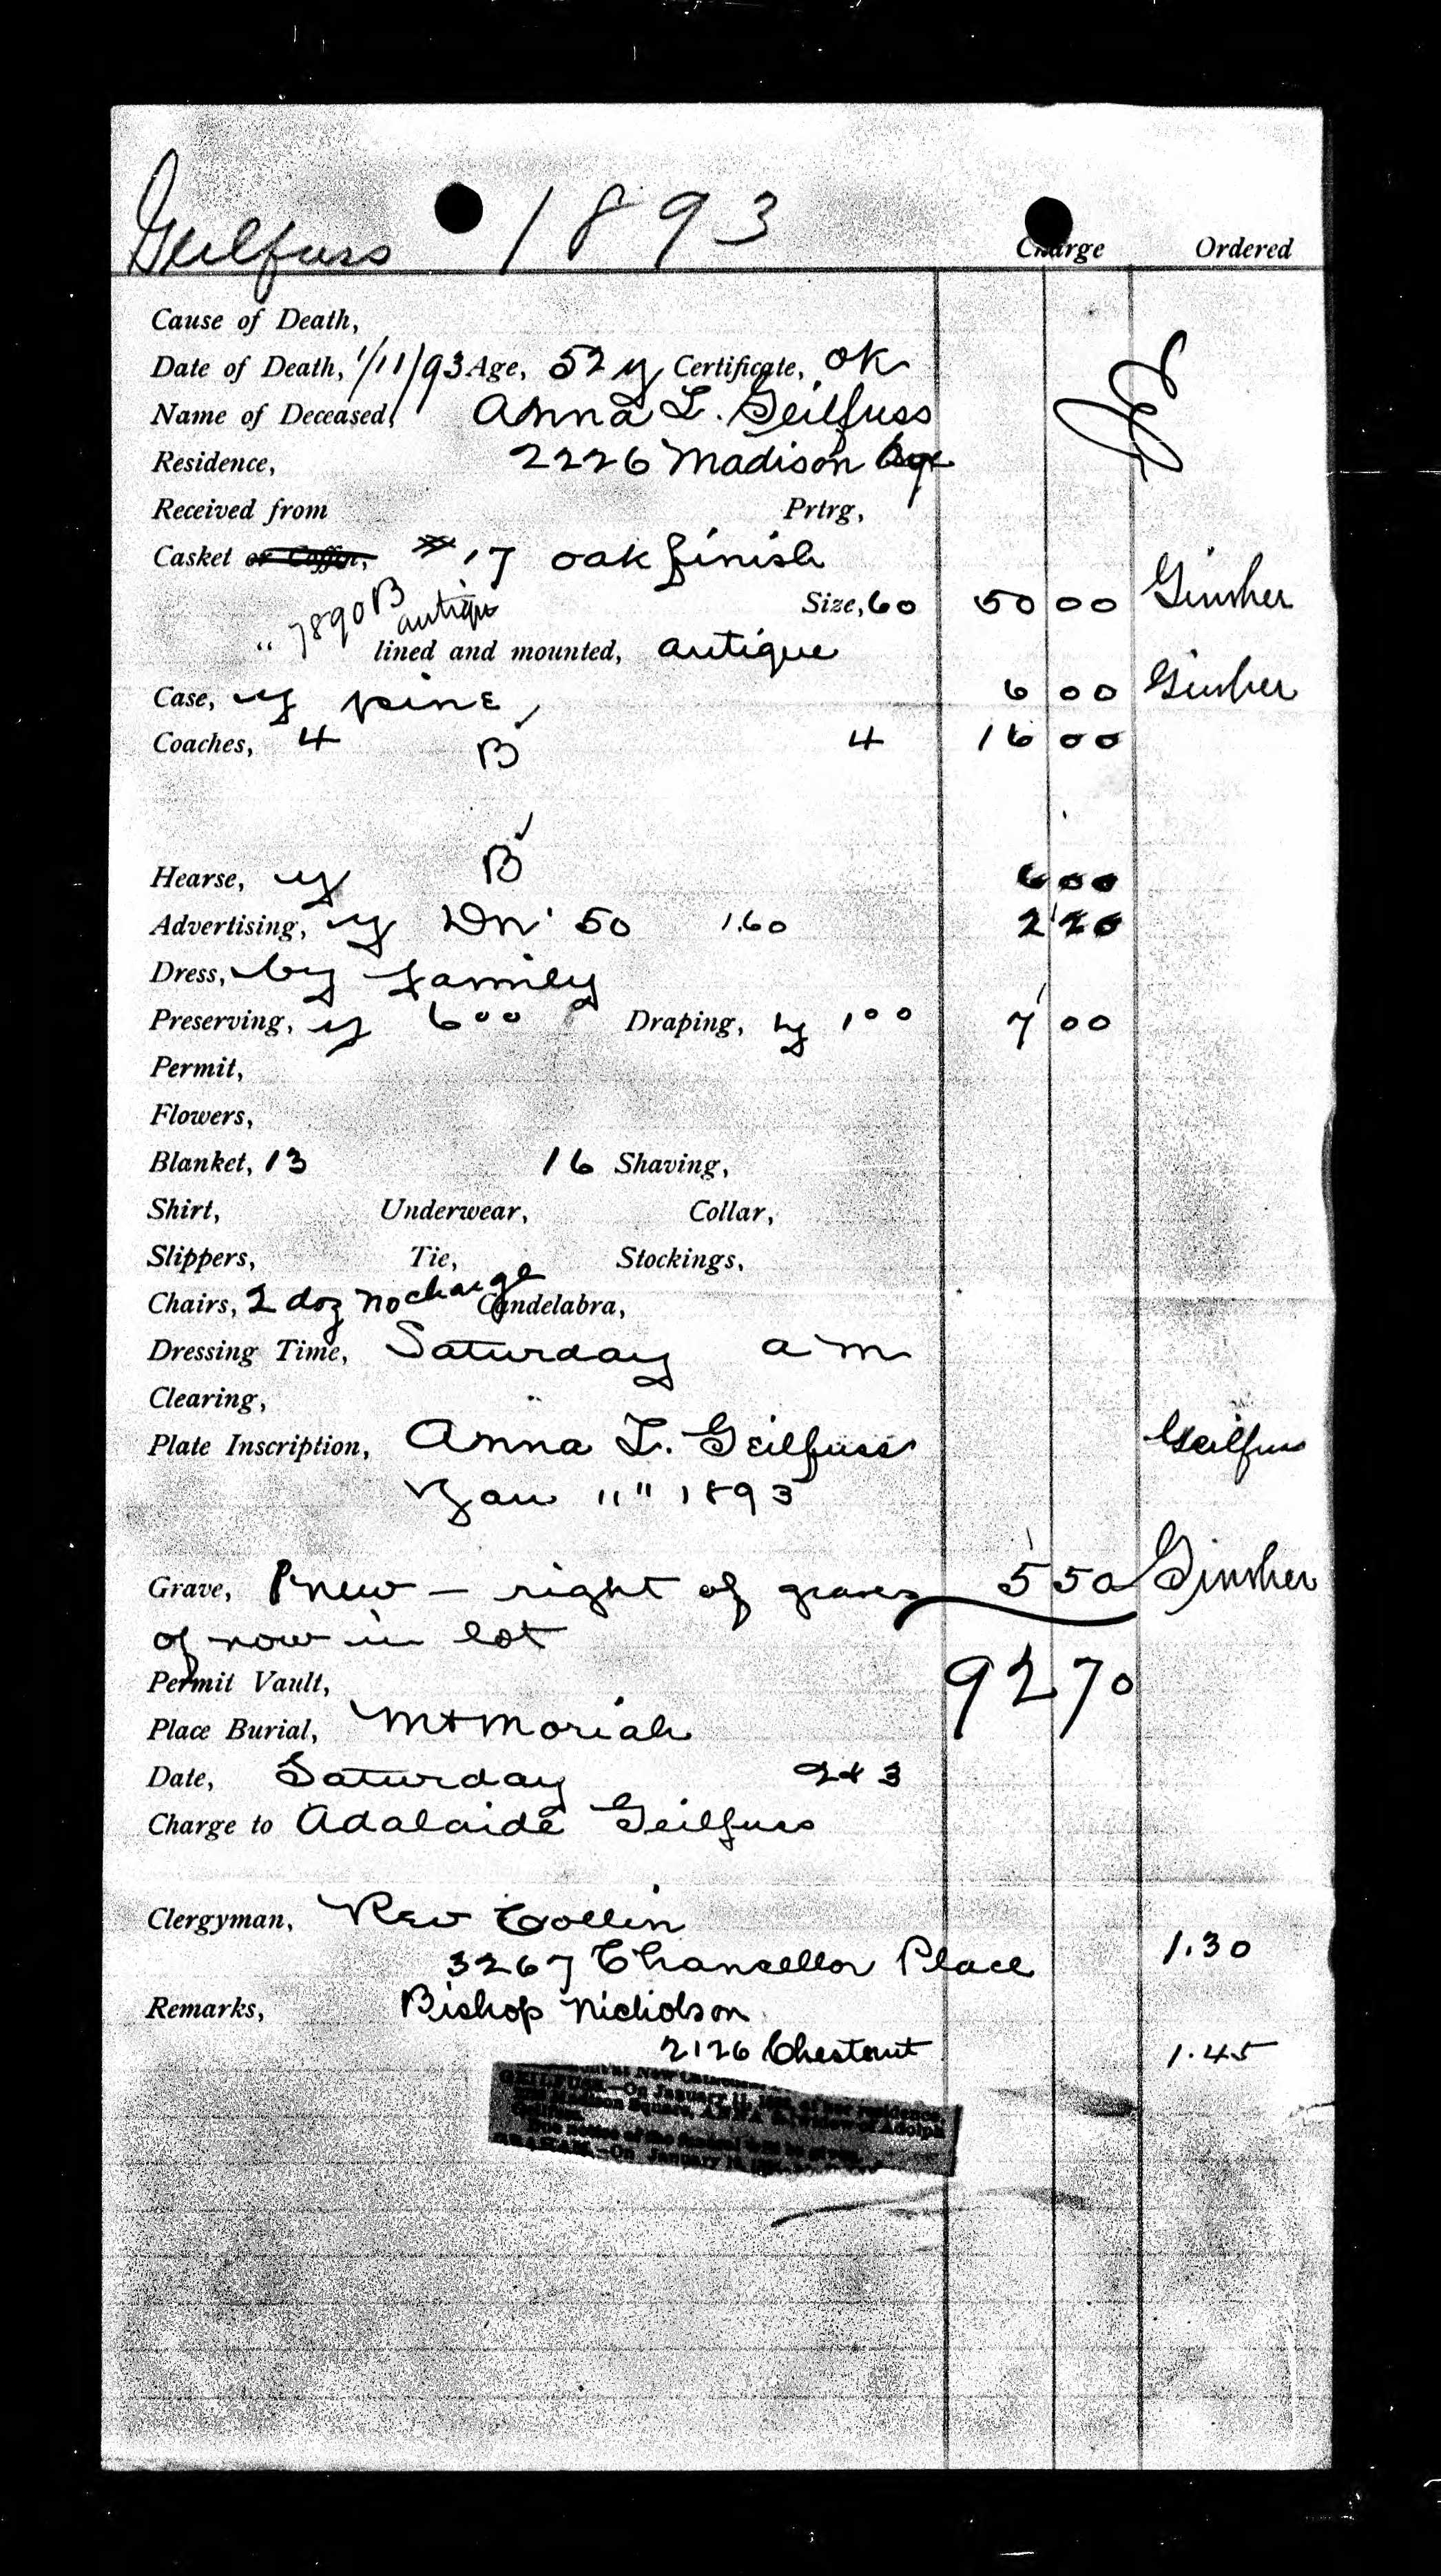 Geilfuss 1893
Charge Ordered
Cause of Death,
Date of Death, 1/11/93 Age, 52 y Certificate, OK
Name of Deceased, Anna L. Geilfuss
Residence, 2226 Madison
Received from Prtrg,
Casket or Coffin, # 17 oak finish
" 7890 B antique Size, 60 50 00
lined and mounted, antique
Case, y pine 6 00
Coaches, 4 B 4 16 00
Hearse, y B 6 00
Advertising, y 50 1.60 2 20
Dress, by family
Preserving, y 6 00 Draping, y 1 00 7 00
Permit,
Flowers,
Blanket, 13 16 Shaving,
Shirt, Underwear, Collar,
Slippers, Tie, Stockings,
Chairs, 2 doz no charge Candelabra,
Dressing Time, Saturday am
Clearing,
Plate Inscription, Anna L. Geilfuss Geilfuss
Jan 11" 1893
Grave, new - right of graves 5 50
of now in lot
92 70
Permit Vault,
Place Burial, Mt Moriah
Date, Saturday 2 & 3
Charge to Adalaide Geilfuss
Clergyman, Rev Collin
3267 Chancellor Place 1.30
Remarks, Bishop Nicholson
2126 Chestnut 1.45
GEILFUSS.—On January 11, at her residence,
Madison Square, ANNA widow of Adolph
Geilfuss.
Due notice of the funeral will be given.
—On January